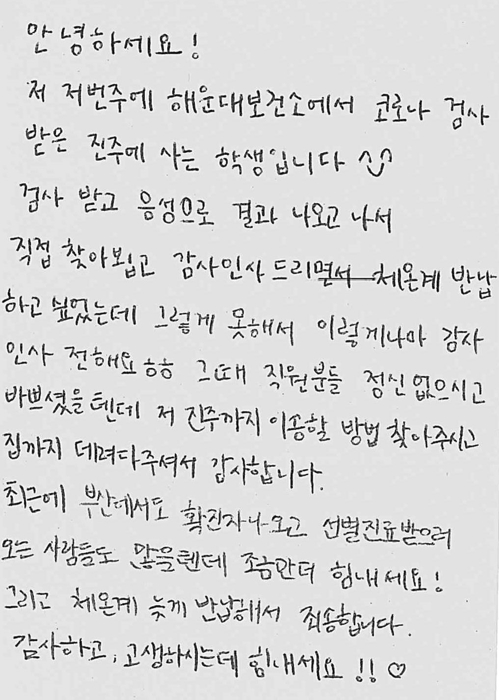 안녕하세요!
저 저번주에 해운대보건소에서 코로나 검사
받은 진주에 사는 학생입니다
검사 받고 음성으로 결과 나오고 나서
직접 찾아뵙고 감사인사 드리면서 체온계 반납
하고 싶었는데 그렇게 못해서 이렇게나마 감사
인사 전해요ㅎㅎ 그때 직원분들 정신 없으시고
바쁘셨을텐데 저 진주까지 이송할 방법 찾아주시고
집까지 데려다주셔서 감사합니다.
최근에 부산에서도 확진자나오고 선별진료받으러
오는 사람들도 많을텐데 조금만더 힘내세요!
그리고 체온계 늦게 반납해서 죄송합니다.
감사하고, 고생하시는데 힘내세요!! ♡